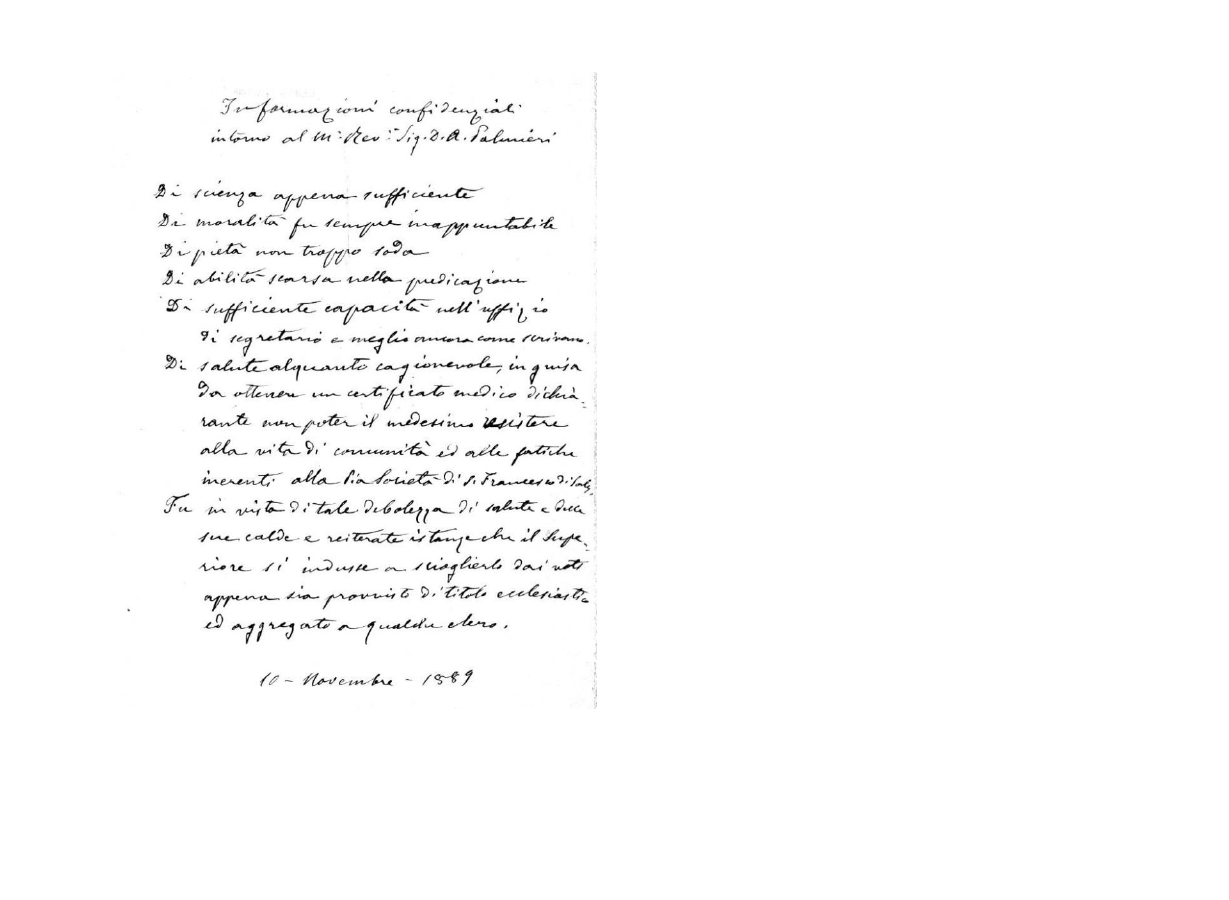 Informazioni confidenziali
intorno al M: Rev: Sig. D. A. Palmieri
Di scienza appena sufficiente
Di moralità fu sempre inappuntabile
Di pietà non troppo soda
Di abilità scarsa nella predicazione
Di sufficiente capacità nell'uffizio
di segretario e meglio ancora come scrivano.
Di salute alquanto cagionevole, in guisa
da ottenere un certificato medico dichia-
rante non poter il medesimo resistere
alla vita di comunità ed alle fatiche
inerenti alla Pia Società di S. Francesco di Sales,
Fu in vista di tale debolezza di salute e delle
sue calde e reiterate istanze che il Supe-
riore si indusse a scioglierlo dai voti
appena sia provvisto di titolo ecclesiastico
ed aggregato a qualche clero.
10 - Novembre - 1889